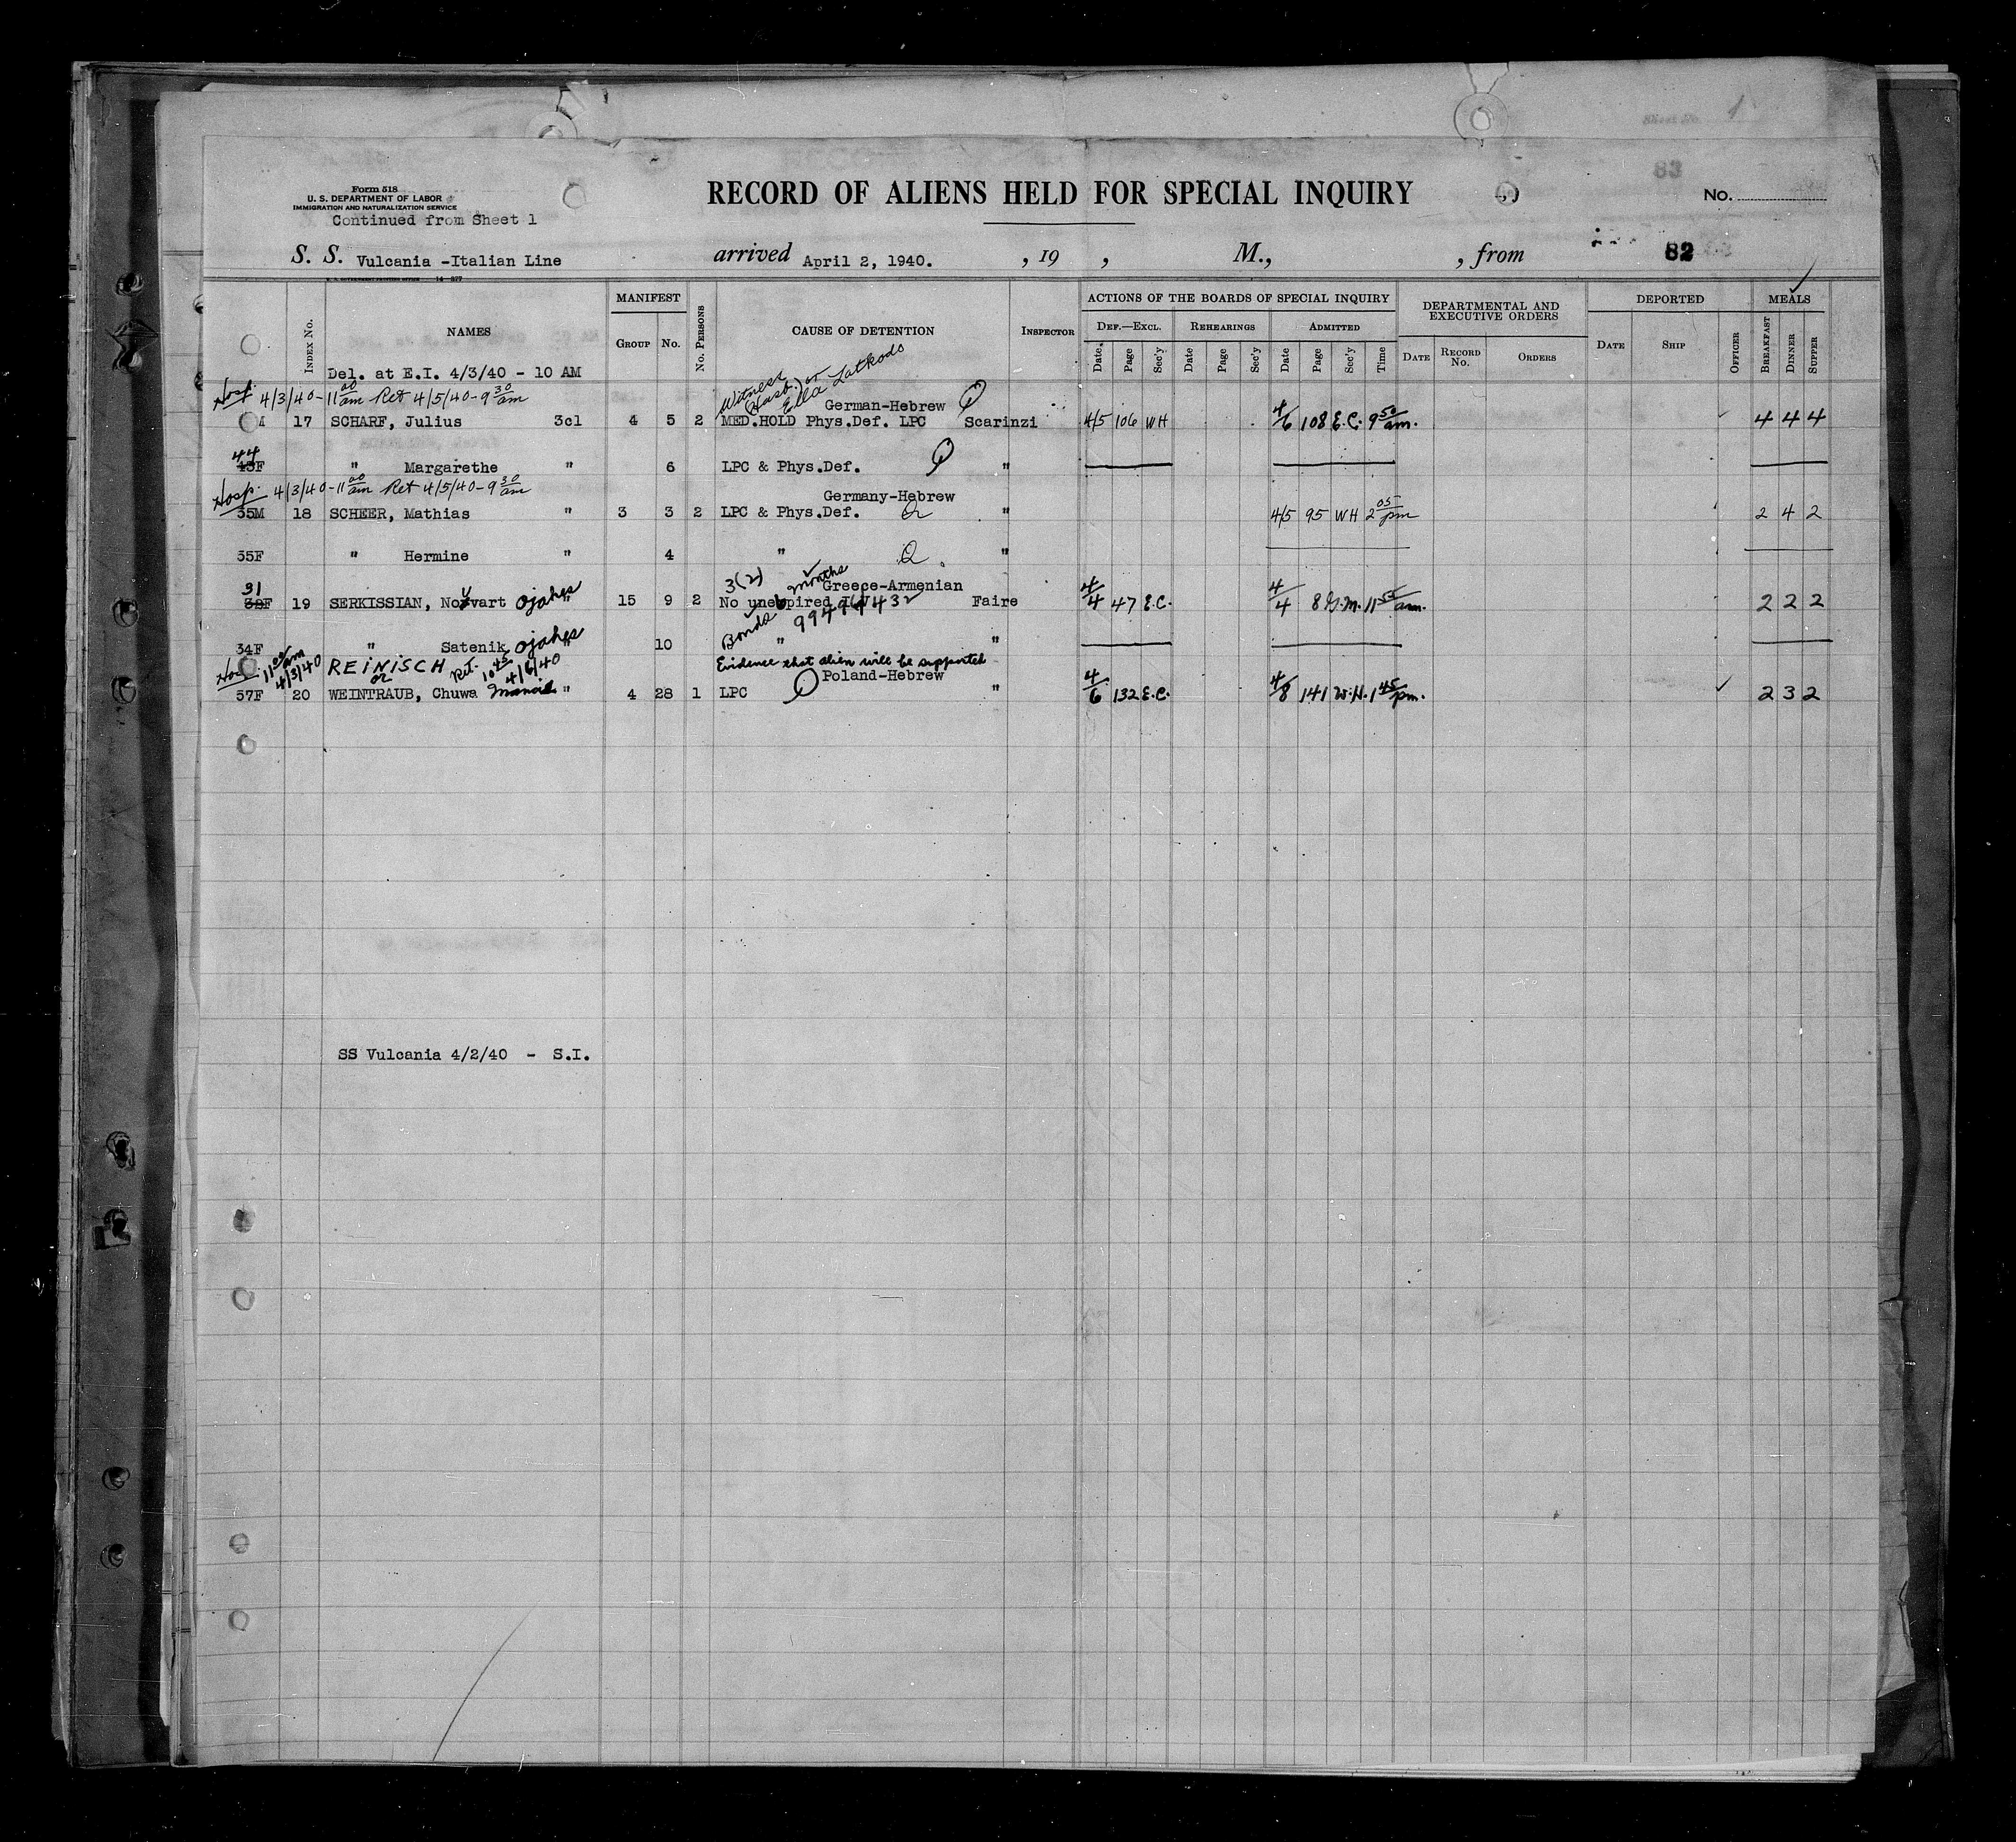 Sheet No. 1
83
Form 518
U. S. DEPARTMENT OF LABOR
IMMIGRATION AND NATURALIZATION SERVICE
Continued from Sheet 1
RECORD OF ALIENS HELD FOR SPECIAL INQUIRY
No.
S. S. Vulcania -Italian Line arrived April 2, 1940. , 19 , M., , from 82
INDEX No. NAMES MANIFEST GROUP No. No. PERSONS CAUSE OF DETENTION INSPECTOR ACTIONS OF THE BOARDS OF SPECIAL INQUIRY DEF.—EXCL. Date Page Sec'y REHEARINGS Date Page Sec'y ADMITTED Date Page Sec'y Time DEPARTMENTAL AND EXECUTIVE ORDERS DATE RECORD No. ORDERS DEPORTED DATE SHIP OFFICER MEALS BREAKFAST DINNER SUPPER
Del. at E.I. 4/3/40 - 10 AM
Hosp. 4/3/40 - 11 00 am Ret 4/5/40 - 9 30 am
Witness Husb. or Ella Latkods
German-Hebrew
M 17 SCHARF, Julius 3cl 4 5 2 MED.HOLD Phys.Def. LPC Scarinzi 4/5 106 WH 4/6 108 E.C. 9 50 am. 4 4 4
44
43F " Margarethe " 6 LPC & Phys.Def. "
Hosp. 4/3/40 - 11 00 am Ret 4/5/40 - 9 30 am
Germany-Hebrew
35M 18 SCHEER, Mathias " 3 3 2 LPC & Phys.Def. " 4/5 95 WH 2 05 pm 2 4 2
35F " Hermine " 4 " "
31 3(2) 6 months
Greece-Armenian
32F 19 SERKISSIAN, Novvart Ojahes " 15 9 2 No unexpired Faire 4/4 47 E.C. 4/4 8 G.M. 11 55 am. 2 2 2
Bonds
34F " Satenik Ojahes " 10 " "
Hosp. 11 00 am 4/3/40 REINISCH or Ret. 10 45 4/6/40 Evidence that alien will be supported
Poland-Hebrew
57F 20 WEINTRAUB, Chuwa " 4 28 1 LPC " 4/6 132 E.C. 4/8 141 W.H. 1 45 pm. 2 3 2
SS Vulcania 4/2/40 - S.I.